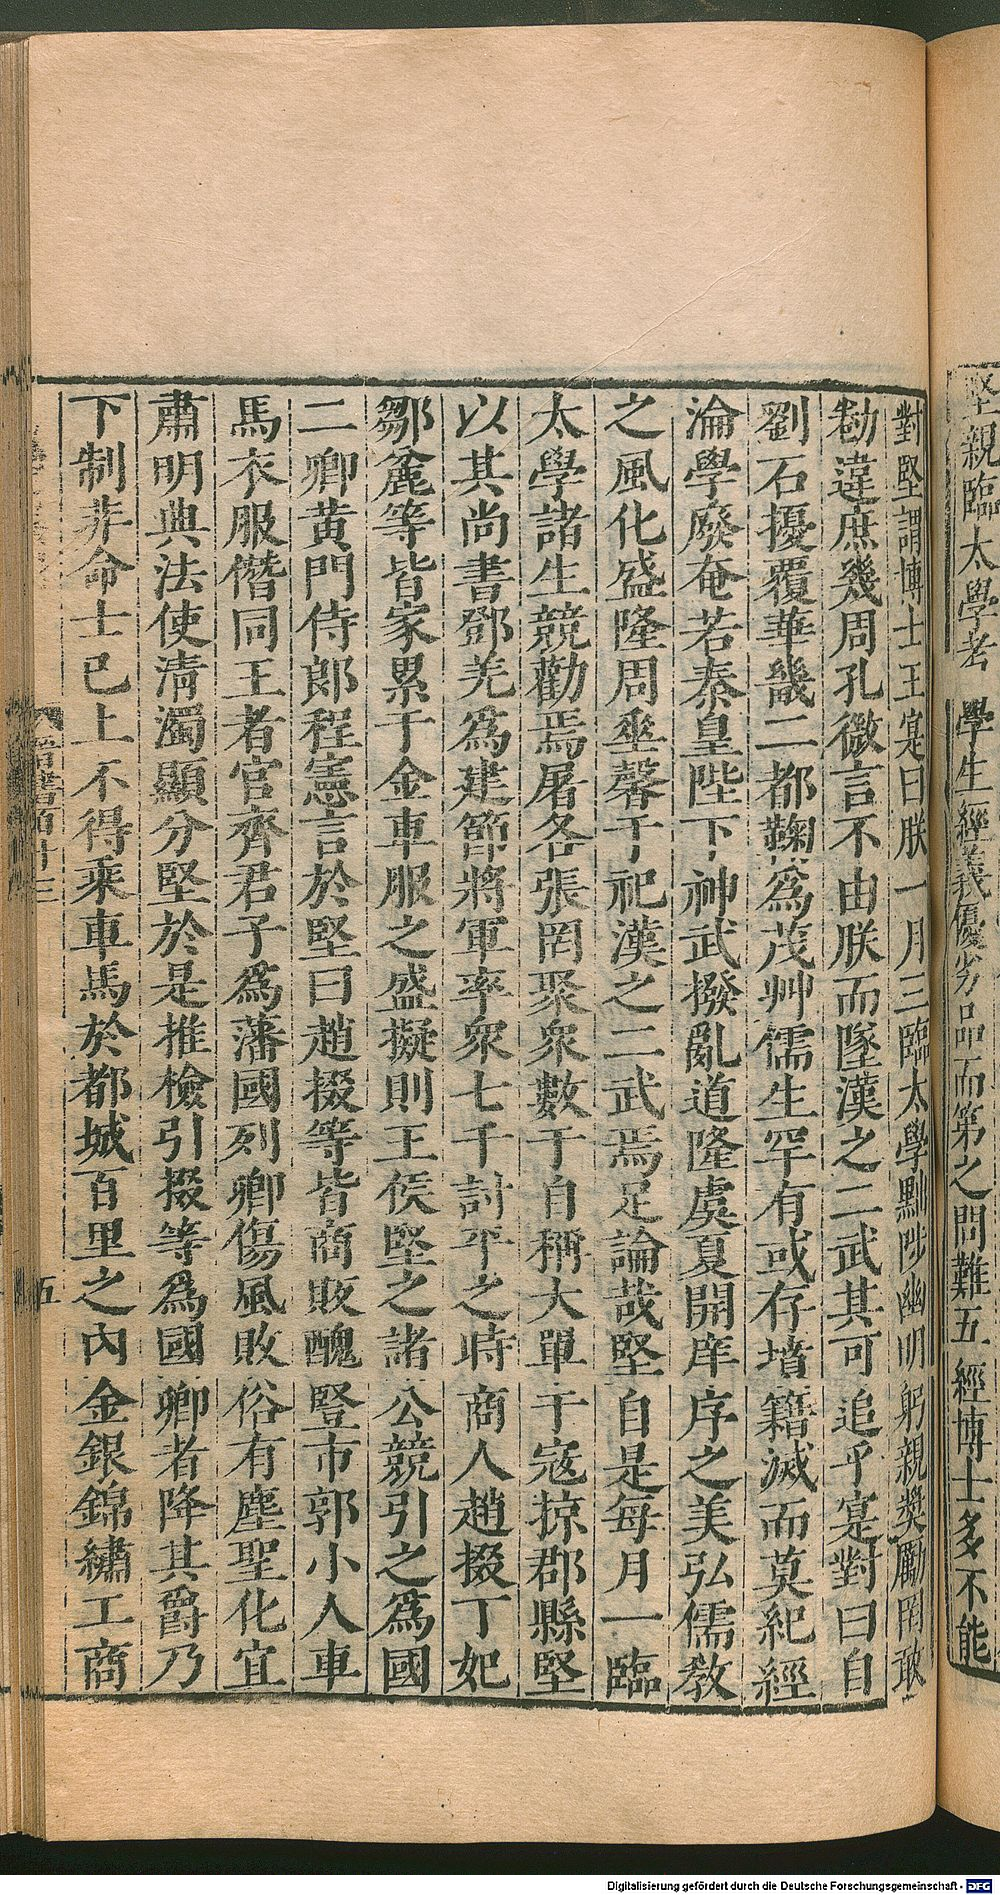 堅親臨太學考學生經義優劣品而第之問難五經博士多不能
對堅謂博士王寔曰朕一月三臨太學黜陟幽明躬親奬勵罔敢
勌違庶幾周孔微言不由朕而墜漢之二武其可追乎寔對曰自
劉石擾覆華畿二都鞠爲茂艸儒生罕有或存墳籍滅而莫紀經
淪學廢奄若秦皇陛下神武撥亂道隆虞夏開庠序之美弘儒教
之風化盛隆周垂馨于祀漢之二武焉足論哉堅自是每月一臨
太學諸生競勸焉屠各張罔聚衆數于自稱大單于寇掠郡縣堅
以其尚書鄧羌爲建節將軍率衆七千討平之時商人趙掇丁妃
鄒瓫等皆家累于金車服之盛擬則王侯堅之諸公競引之爲國
二卿黄門侍郎程憲言於堅曰趙掇等皆商敗醜豎市郭小人車
馬衣服僭同王者官齊君子爲藩國列卿傷風敗俗有塵聖化宜
肅明典法使清濁顯分堅於是推檢引掇等爲國卿者降其爵乃
下制非命士已上不得乘車馬於都城百里之内金銀錦繡工商
晉書百十三
五
Digitalisierung gefördert durch die Deutsche Forschungsgemeinschaft - DFG